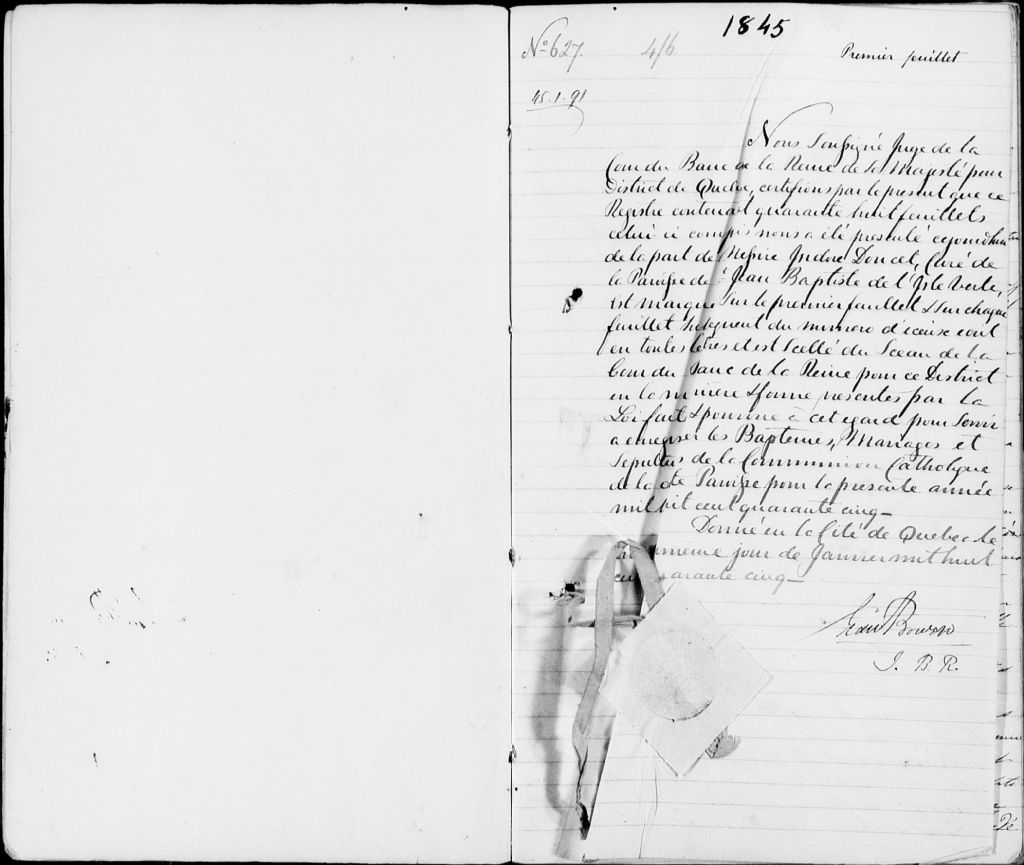 1845
No 627. 4/6 Premier feuillet
45.1.91
Nous Soussigné Juge de la
Cour du Banc de la Reine de Sa Majesté pour
District de Quebec, certifions par le present que ce
Registre contenant quarante huit feuillets
celui ci compris nous a été presenté
de la part de Messire Doucet, Curé de
la Paroisse de St Jean Baptiste de l'Isle Verte,
est marqué Sur le premier feuillet & Sur chaque
feuillet Subsequent du numero d'iceux ecrit
en toutes letres et est Scellé du Sceau de la
Cour du Banc de la Reine pour ce District
en la maniere & forme par la
Loi fait & pourvue à cet egard pour Servir
a les Baptemes, Mariages et
Sepultures de la Communion Catholique
de la dte Paroisse pour la presente année
mil huit cent quarante cinq
Donné en la Cité de Quebec le
jour de Janvier mil huit
cent quarante cinq
Bowen
J. B. R.